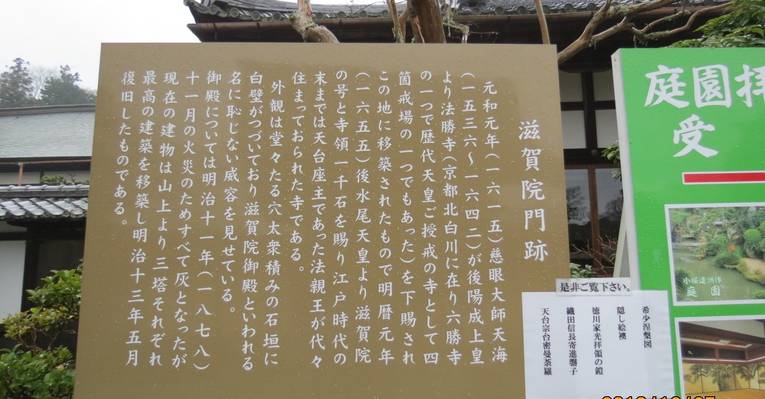 滋賀院門跡
元和元年(一六一五)慈眼大師天海
(一五三六〜一六四二)が後陽成上皇
より法勝寺(京都北白川に在り六勝寺
の一つで歴代天皇ご授戒の寺として四
箇戒場の一つでもあった)を下賜され
この地に移築されたもので明暦元年
(一六五五)後水尾天皇より滋賀院
の号と寺領一千石を賜り江戸時代の
末までは天台座主であった法親王が代々
住まっておられた寺である。
外観は堂々たる穴太衆積みの石垣に
白壁がつづいており滋賀院御殿といわれる
名に恥じない威容を見せている。
御殿については明治十一年(一八七八)
十一月の火災のためすべて灰となったが
現在の建物は山上より三塔それぞれ
最高の建築を移築し明治十三年五月
復旧したものである。
庭園拝
受
小堀遠州作
庭園
是非ご覧下さい。
希少涅槃図
隠し絵襖
徳川家光拝領の鎧
織田信長寄進磬子
天台宗台密曼荼羅